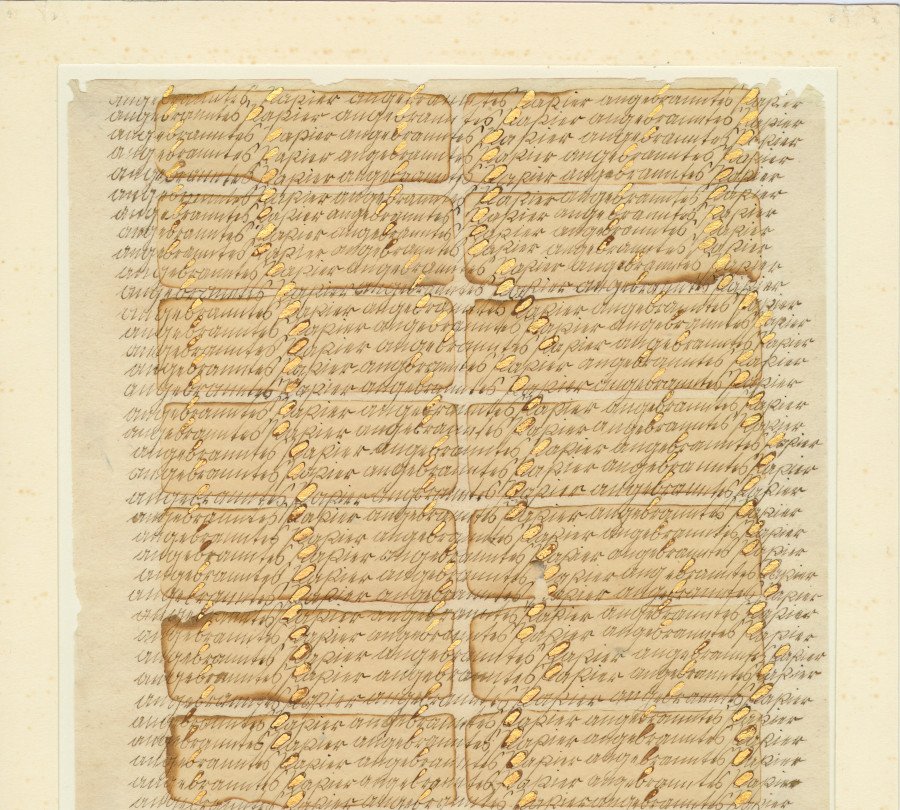 angebranntes Papier angebranntes Papier angebranntes Papier
angebranntes Papier angebranntes Papier angebranntes Papier
angebranntes Papier angebranntes Papier angebranntes Papier
angebranntes Papier angebranntes Papier angebranntes Papier
angebranntes Papier angebranntes Papier angebranntes Papier
angebranntes Papier angebranntes Papier angebranntes Papier
angebranntes Papier angebranntes Papier angebranntes Papier
angebranntes Papier angebranntes Papier angebranntes Papier
angebranntes Papier angebranntes Papier angebranntes Papier
angebranntes Papier angebranntes Papier angebranntes Papier
angebranntes Papier angebranntes Papier angebranntes Papier
angebranntes Papier angebranntes Papier angebranntes Papier
angebranntes Papier angebranntes Papier angebranntes Papier
angebranntes Papier angebranntes Papier angebranntes Papier
angebranntes Papier angebranntes Papier angebranntes Papier
angebranntes Papier angebranntes Papier angebranntes Papier
angebranntes Papier angebranntes Papier angebranntes Papier
angebranntes Papier angebranntes Papier angebranntes Papier
angebranntes Papier angebranntes Papier angebranntes Papier
angebranntes Papier angebranntes Papier angebranntes Papier
angebranntes Papier angebranntes Papier angebranntes Papier
angebranntes Papier angebranntes Papier angebranntes Papier
angebranntes Papier angebranntes Papier angebranntes Papier
angebranntes Papier angebranntes Papier angebranntes Papier
angebranntes Papier angebranntes Papier angebranntes Papier
angebranntes Papier angebranntes Papier angebranntes Papier
angebranntes Papier angebranntes Papier angebranntes Papier
angebranntes Papier angebranntes Papier angebranntes Papier
angebranntes Papier angebranntes Papier angebranntes Papier
angebranntes Papier angebranntes Papier angebranntes Papier
angebranntes Papier angebranntes Papier angebranntes Papier
angebranntes Papier angebranntes Papier angebranntes Papier
angebranntes Papier angebranntes Papier angebranntes Papier
angebranntes Papier angebranntes Papier angebranntes Papier
angebranntes Papier angebranntes Papier angebranntes Papier
angebranntes Papier angebranntes Papier angebranntes Papier